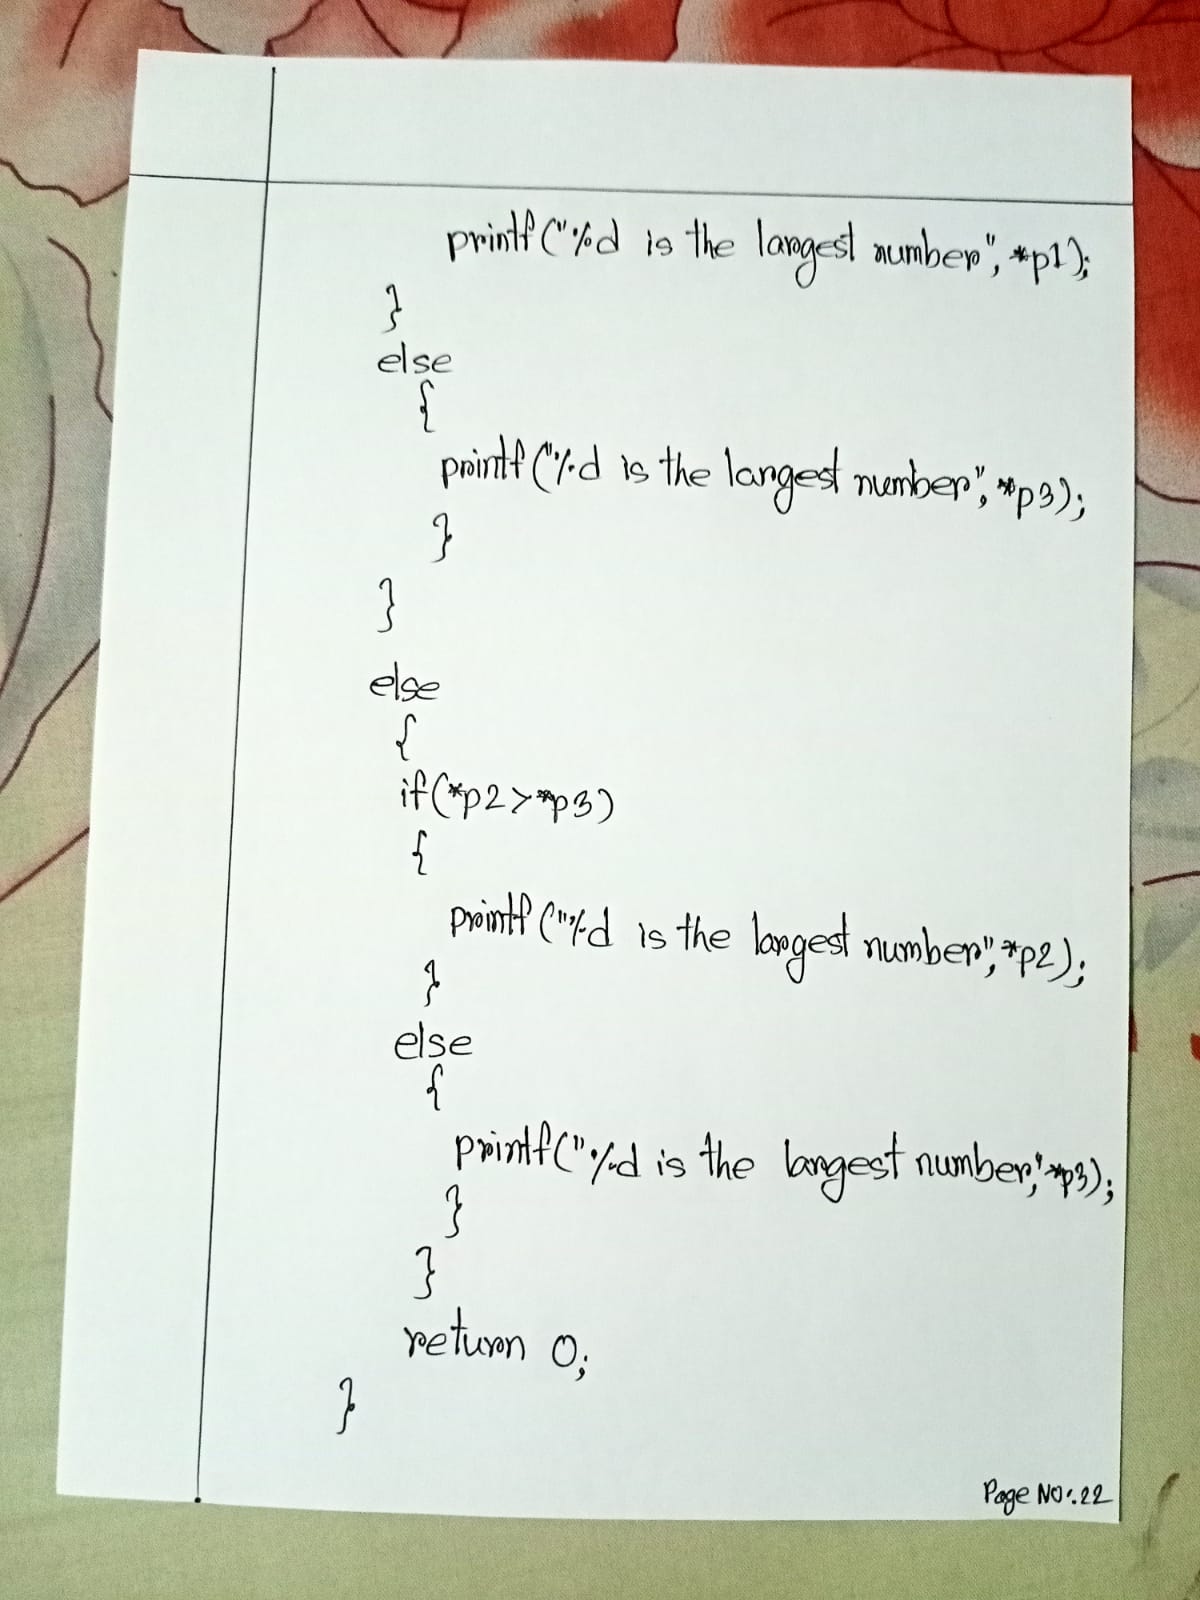 printf("%d is the largest number", *p1);
}
else
{
printf("%d is the largest number", *p3);
}
}
else
{
if(*p2>*p3)
{
printf("%d is the largest number", *p2);
}
else
{
printf("%d is the largest number", *p3);
}
}
return 0;
}
Page No:.22